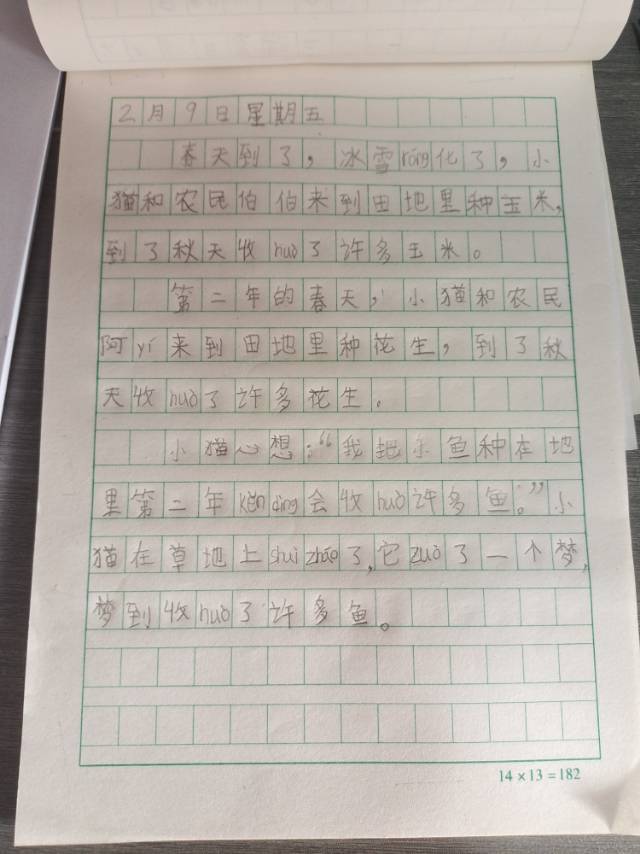 2月9日星期五
春天到了，冰雪róng化了，小
猫和农民伯伯来到田地里种玉米，
到了秋天收huò了许多玉米。
第二年的春天，小猫和农民
阿yí来到田地里种花生，到了秋
天收huò了许多花生。
小猫心想：“我把小鱼种在地
里第二年kěn dìng会收huò许多鱼。”小
猫在草地上shuì zháo了，它zuò了一个梦，
梦到收huò了许多鱼。
14×13=182